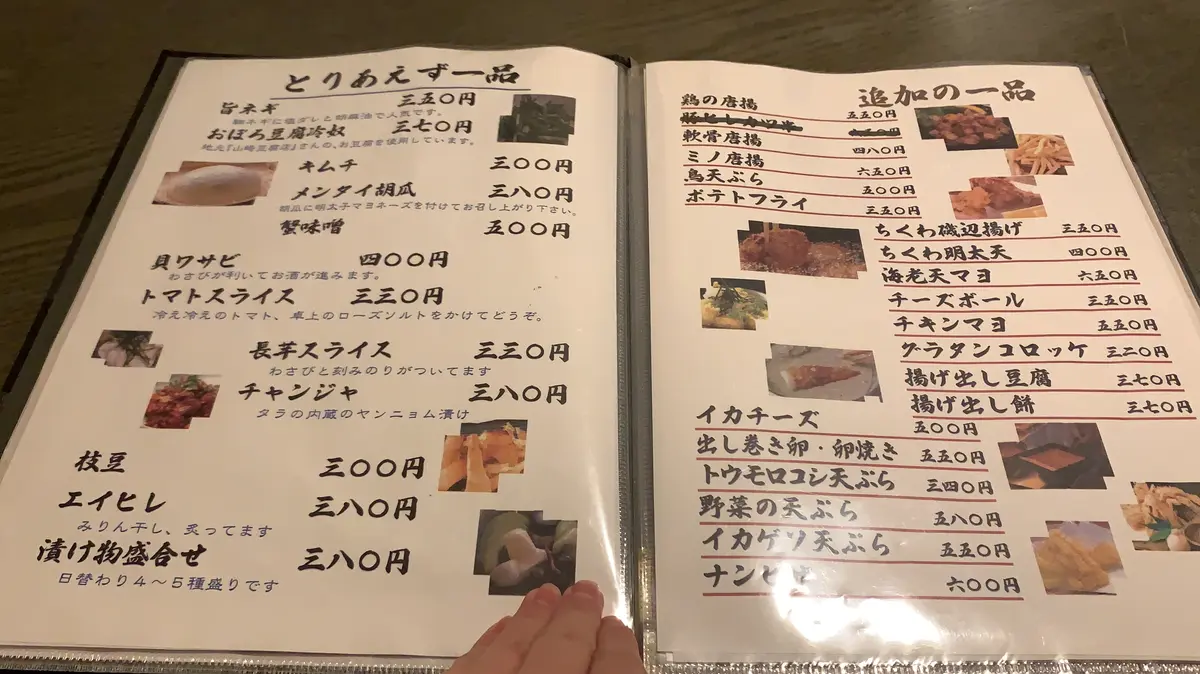 とりあえず一品
旨ネギ 三五〇円
細ネギに塩ダレと胡麻油で人気です。
おぼろ豆腐冷奴 三七〇円
地元『山崎豆腐店』さんの、お豆腐を使用しています。
キムチ 三〇〇円
メンタイ胡瓜 三八〇円
胡瓜に明太子マヨネーズを付けてお召し上がり下さい。
蟹味噌 五〇〇円
貝ワサビ 四〇〇円
わさびが利いてお酒が進みます。
トマトスライス 三三〇円
冷え冷えのトマト、卓上のローズソルトをかけてどうぞ。
長芋スライス 三三〇円
わさびと刻みのりがついてます
チャンジャ 三八〇円
タラの内蔵のヤンニョム漬け
枝豆 三〇〇円
エイヒレ 三八〇円
みりん干し、炙ってます
漬け物盛合せ 三八〇円
日替わり4～5種盛りです
追加の一品
鶏の唐揚 五五〇円
軟骨唐揚 四八〇円
ミノ唐揚 六五〇円
鳥天ぷら 五〇〇円
ポテトフライ 三五〇円
ちくわ磯辺揚げ 三五〇円
ちくわ明太天 四〇〇円
海老天マヨ 六五〇円
チーズボール 三五〇円
チキンマヨ 五五〇円
グラタンコロッケ 三二〇円
揚げ出し豆腐 三七〇円
揚げ出し餅 三七〇円
イカチーズ 五〇〇円
出し巻き卵・卵焼き 五五〇円
トウモロコシ天ぷら 三四〇円
野菜の天ぷら 五八〇円
イカゲソ天ぷら 五五〇円
ナンピザ 六〇〇円